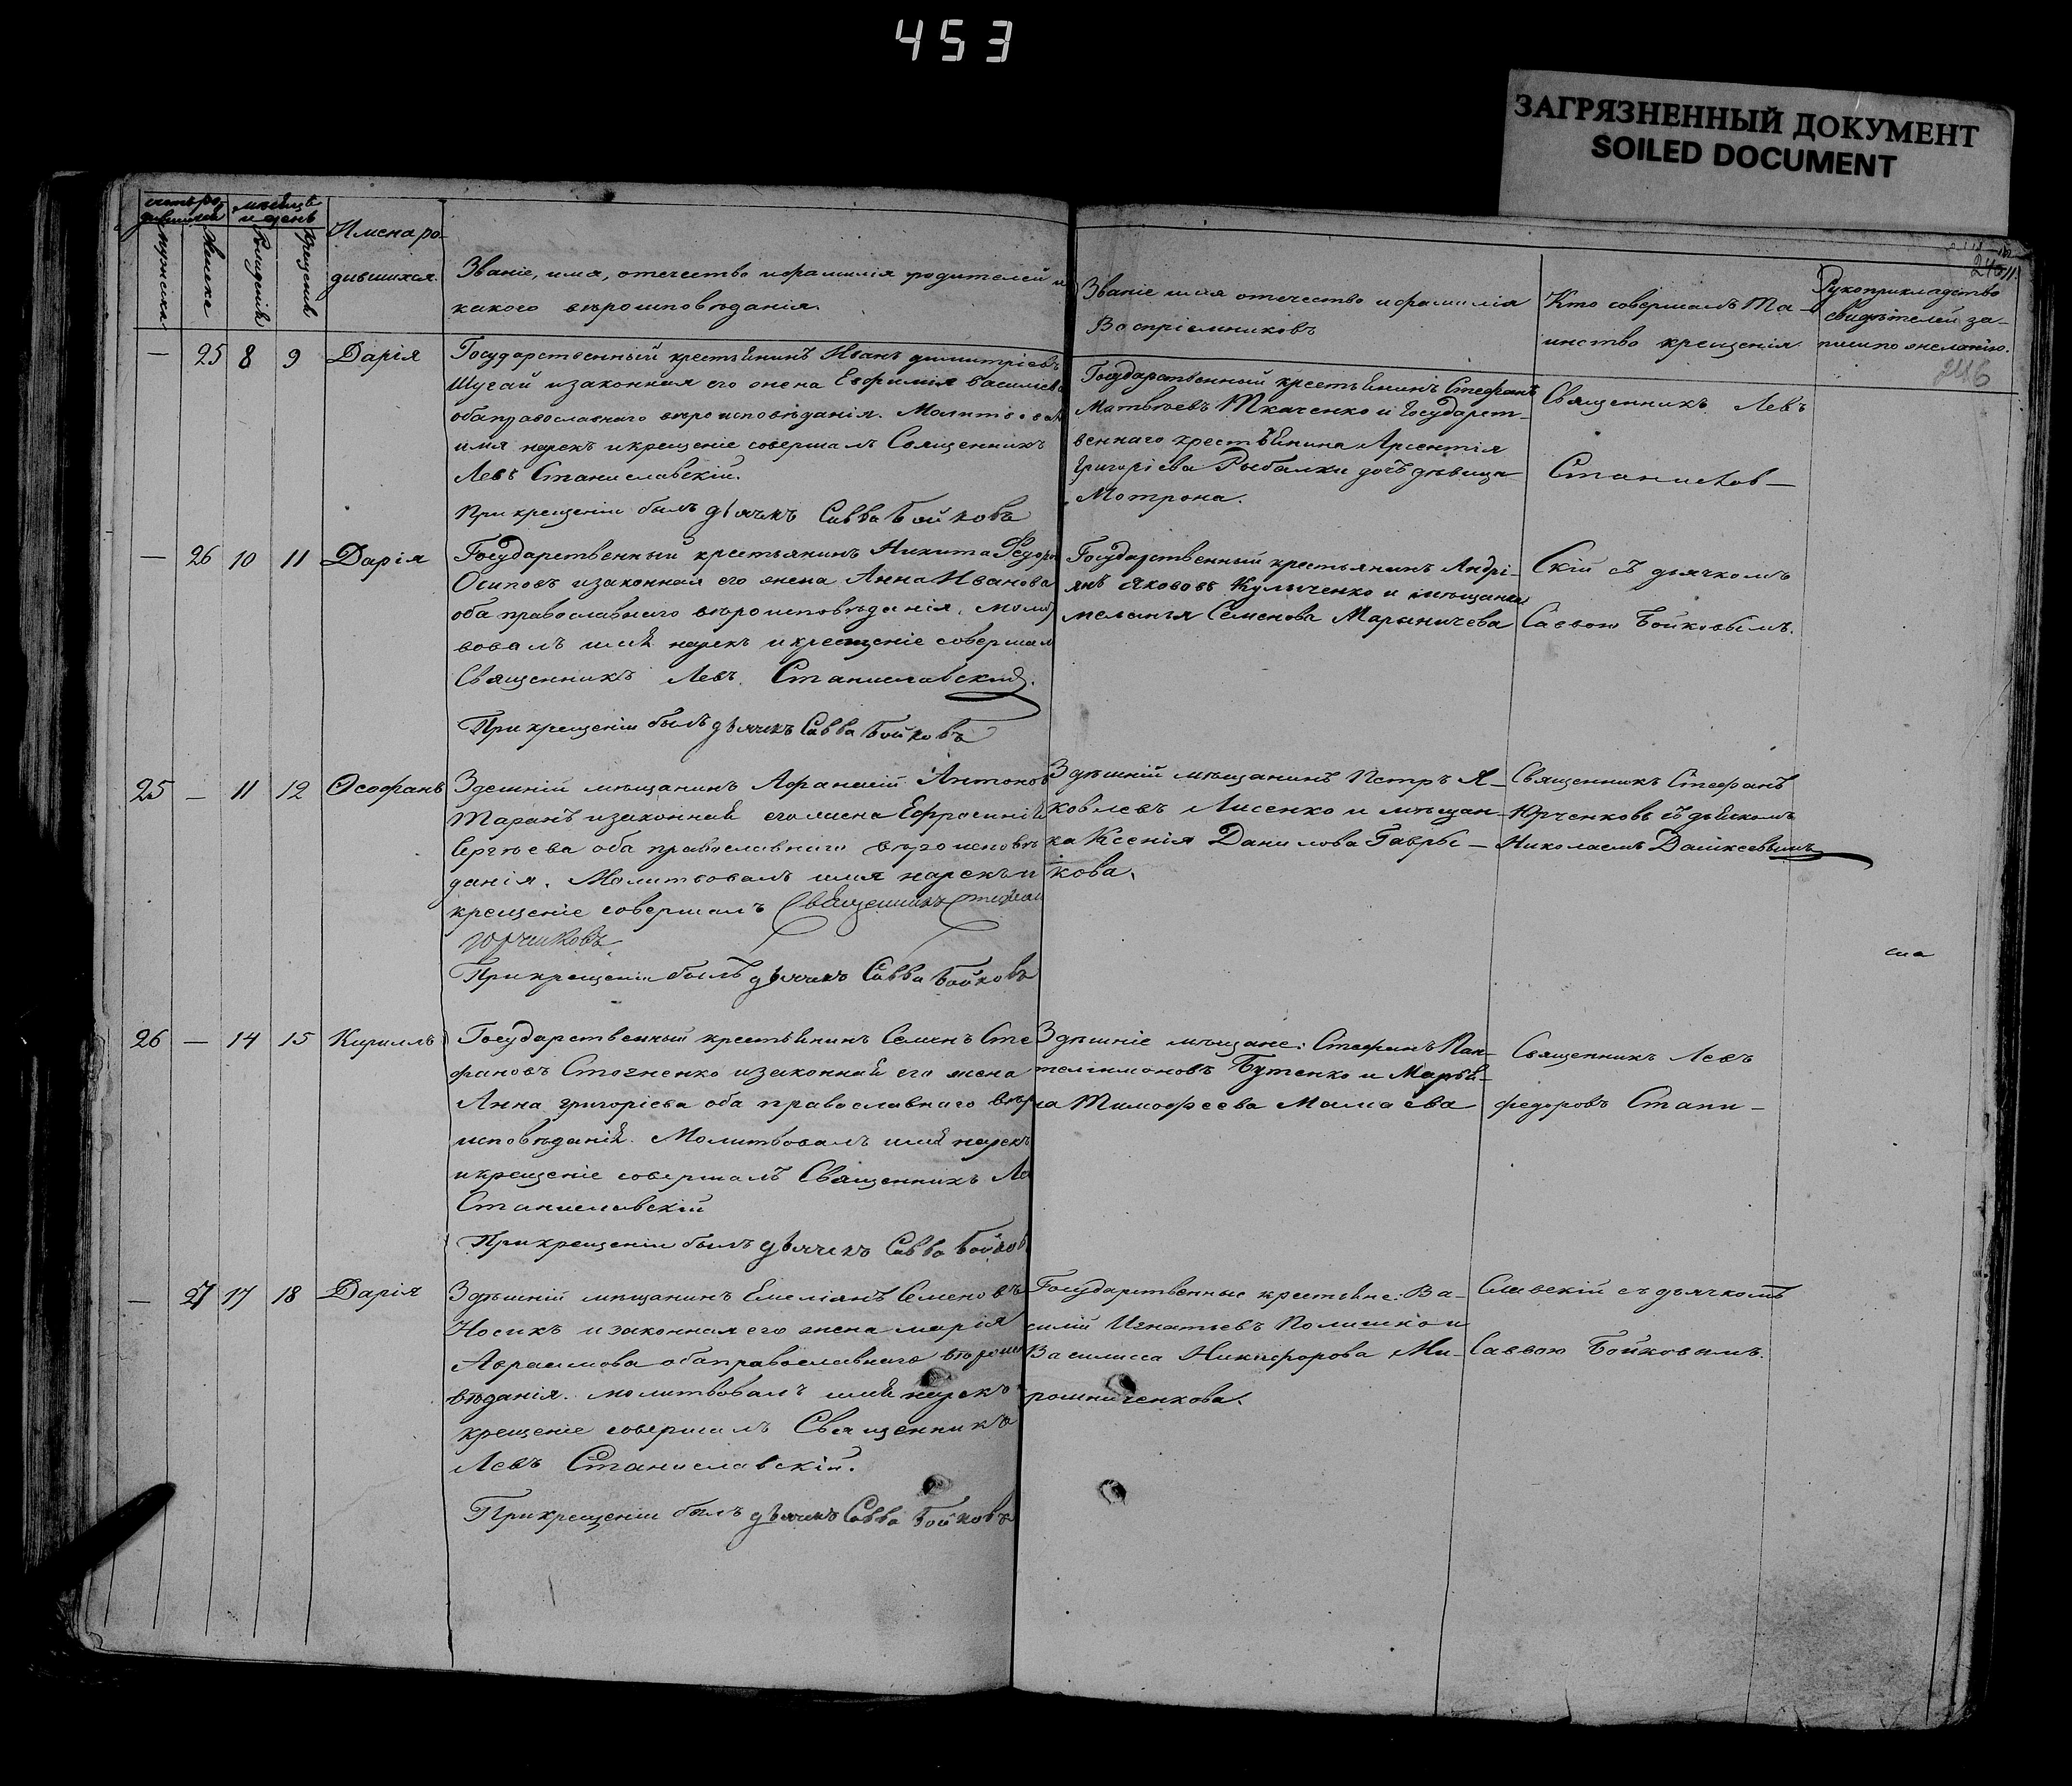 453
ЗАГРЯЗНЕННЫЙ ДОКУМЕНТ
SOILED DOCUMENT
246
мѣсяцъ и день
Имена ро-
дившихся.
мужска
женска
рожденія
крещенія
Званіе, имя, отечество и фамилія родителей и
какого вѣроисповѣданія.
Званіе имя отечество и фамилія
Воспріемниковъ
Кто совершалъ Та-
инство крещенія
Рукоприкладство
свидѣтелей за-
писи по желанію.
— 25 8 9 Дарія
Государственный крестьянинъ Иванъ димитріевъ
Шугай и законная его жена Евфимія василіева
оба православнаго вѣроисповѣданія. Молитвовалъ
имя нарекъ и крещеніе совершалъ Священникъ
Левъ Станиславскій.
При крещеніи былъ дьячекъ Савва Бойковъ
Государственный крестьянинъ Стефанъ
Матвѣевъ Ткаченко и Государст-
веннаго крестьянина Арсентія
Григоріева Рыбалки дочь дѣвица
Мотрона.
Священникъ Левъ
Станислав-
— 26 10 11 Дарія
Государственный крестьянинъ Никита Федоро
Осиповъ и законная его жена Анна Иванова
оба православнаго вѣроисповѣданія, молит
вовалъ имя нарекъ и крещеніе совершал
Священникъ Левъ Станиславскій.
При крещеніи былъ дьячекъ Савва Бойковъ
Государственный крестьянинъ Андрі-
янъ Яковъ Куличенко и мѣщанка
меланья Семенова Мариничева
Скій съ дьячкомъ
Саввою Бойковымъ.
25 — 11 12 Ѳеофанъ
Здешній мѣщанинъ Афанасій Антонов
Таранъ и законная его жена Ефросинія
Сергѣева оба православнаго вѣроисповѣ
данія. Молитвовалъ имя нарекъ и
крещеніе совершалъ Священникъ Стефан
Юрченковъ
При крещеніи былъ дьячекъ Савва Бойковъ
Здѣшній мѣщанинъ Петръ Я-
ковлевъ Лисенко и мѣщан-
ка Ксенія Данилова Гаври-
кова.
Священникъ Стефанъ
Юрченковъ съ дьячкомъ
Николаемъ
26 — 14 15 Кириллъ
Государственный крестьянинъ Семенъ Сте
фановъ Стогненко и законная его жена
Анна григоріева оба православнаго вѣро
исповѣданія. Молитвовалъ имя нарекъ
и крещеніе совершалъ Священникъ Ле
Станиславскій
При крещеніи былъ дьячекъ Савва Бойков
Здѣшніе мѣщане: Стефанъ Пан-
телимоновъ Бутенко и Марѳа-
на Тимофеева Мамаева
Священникъ Левъ
федоровъ Стани-
— 27 17 18 Дарія
Здѣшній мѣщанинъ Емеліянъ Семеновъ
Носикъ и законная его жена марія
Аврамова оба православнаго вѣроиспо
вѣданія. молитвовалъ имя нарекъ
крещеніе совершалъ Священникъ
Левъ Станиславскій.
При крещеніи былъ дьячекъ Савва Бойковъ
Государственные крестьяне: Ва-
силій Игнатьевъ Полишко и
Василисса Никифорова Ми-
рошниченкова.
Славскій съ дьячкомъ
Саввою Бойковымъ.